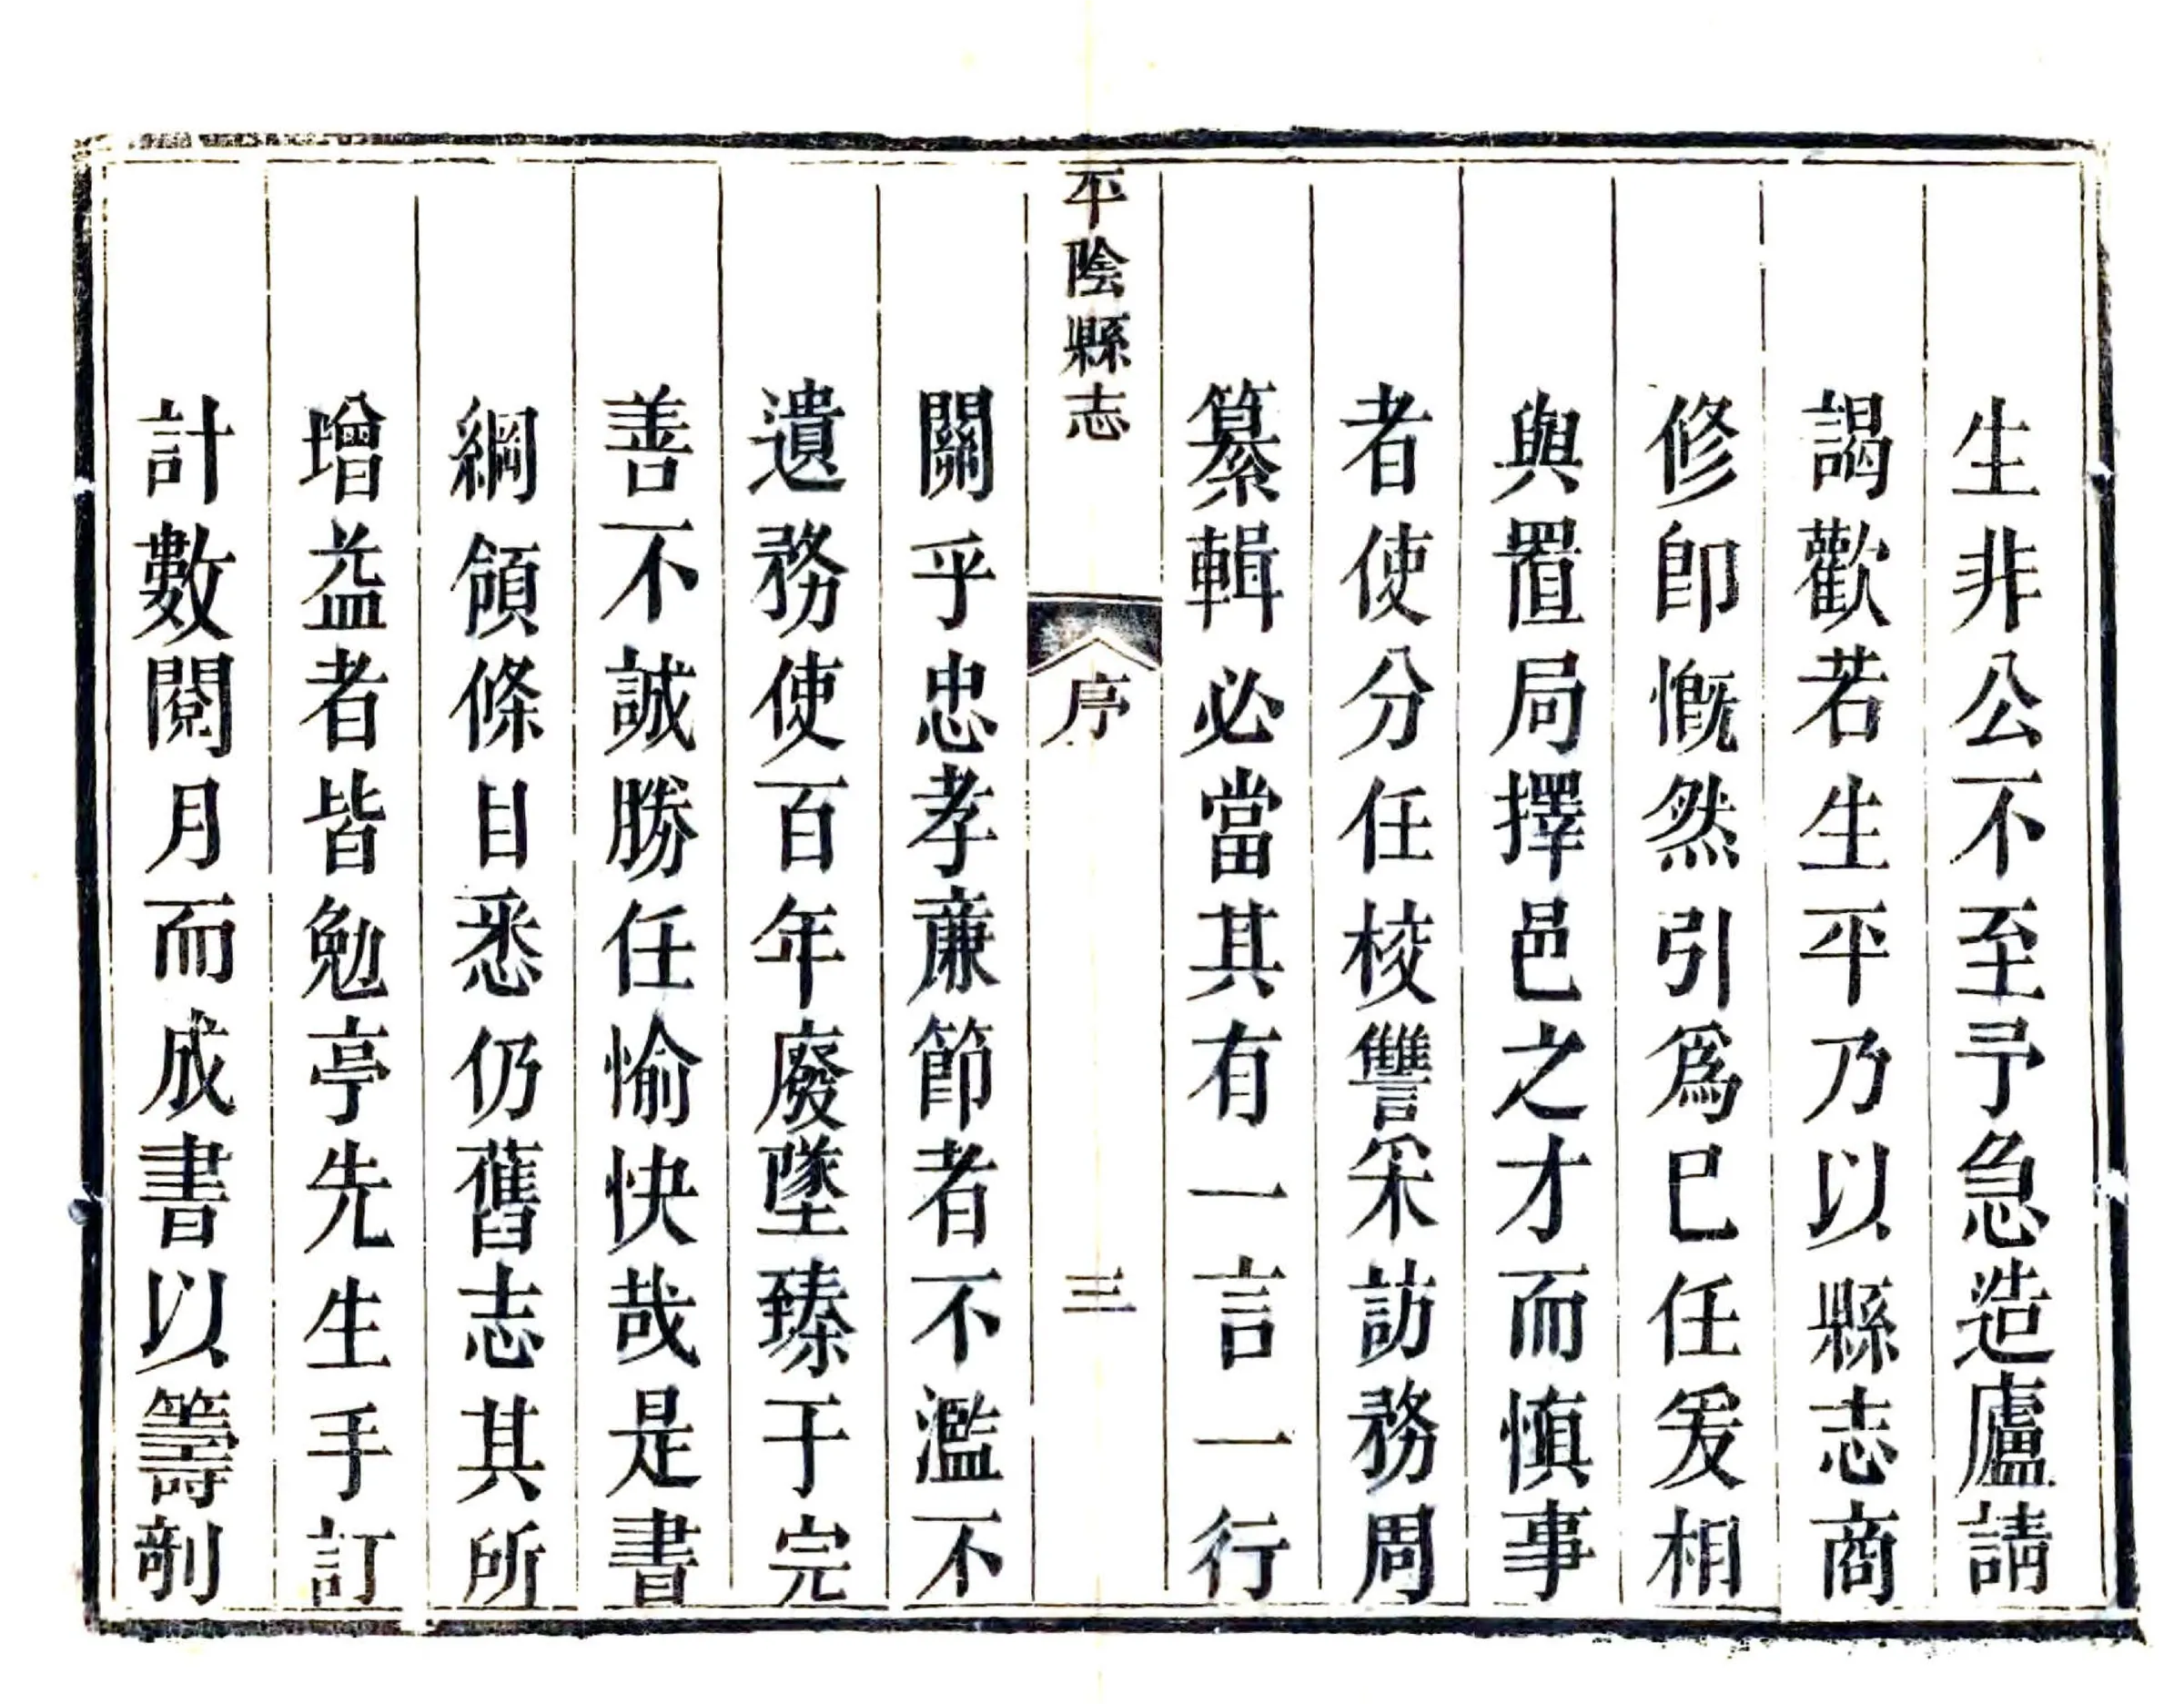 生非公不至予急造廬請
謁歡若生平乃以縣志商
修卽慨然引爲已任爰相
與置局擇邑之才而愼事
者使分任校讐采訪務周
纂輯必當其有一言一行
平陰縣志
序
三
關乎忠孝廉節者不濫不
遺務使百年廢墜臻于完
善不誠勝任愉快哉是書
綱領條目悉仍舊志其所
增益者皆勉亭先生手訂
計數閱月而成書以籌剞